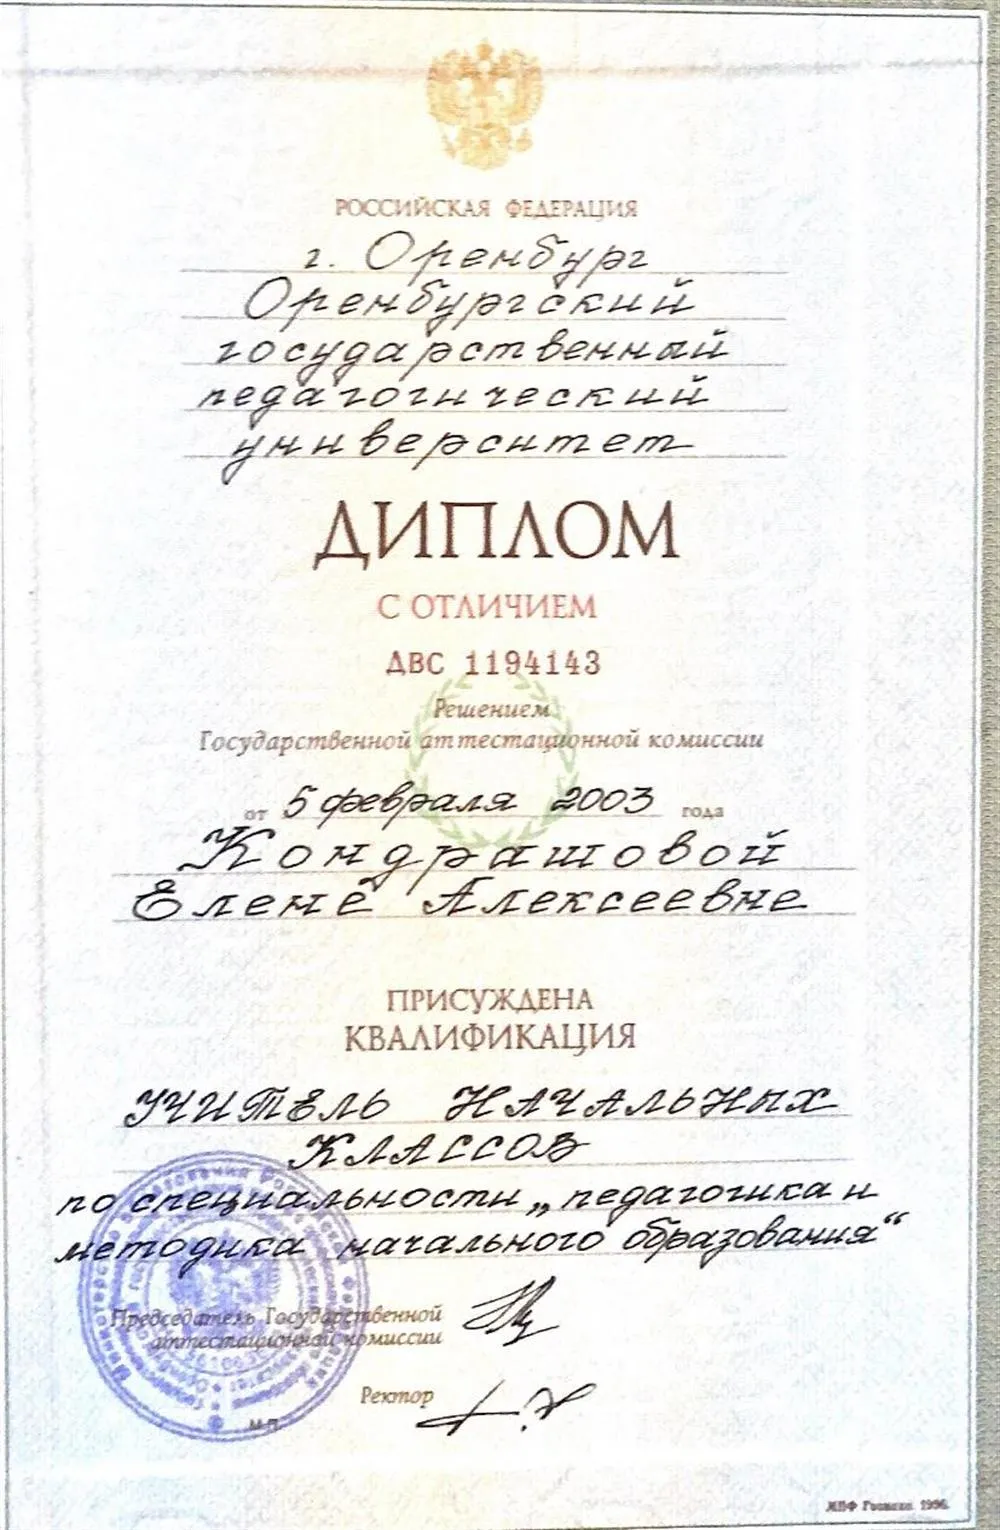 РОССИЙСКАЯ ФЕДЕРАЦИЯ
г. Оренбург
Оренбургский
государственный
педагогический
университет
ДИПЛОМ
С ОТЛИЧИЕМ
ДВС 1194143
Решением
Государственной аттестационной комиссии
от 5 февраля 2003 года
Кондрашовой
Елене Алексеевне
ПРИСУЖДЕНА
КВАЛИФИКАЦИЯ
УЧИТЕЛЬ НАЧАЛЬНЫХ
КЛАССОВ
по специальности „педагогика и
методика начального образования“
Председатель Государственной
аттестационной комиссии
Ректор
М.П.
МПФ Гознака. 1996.